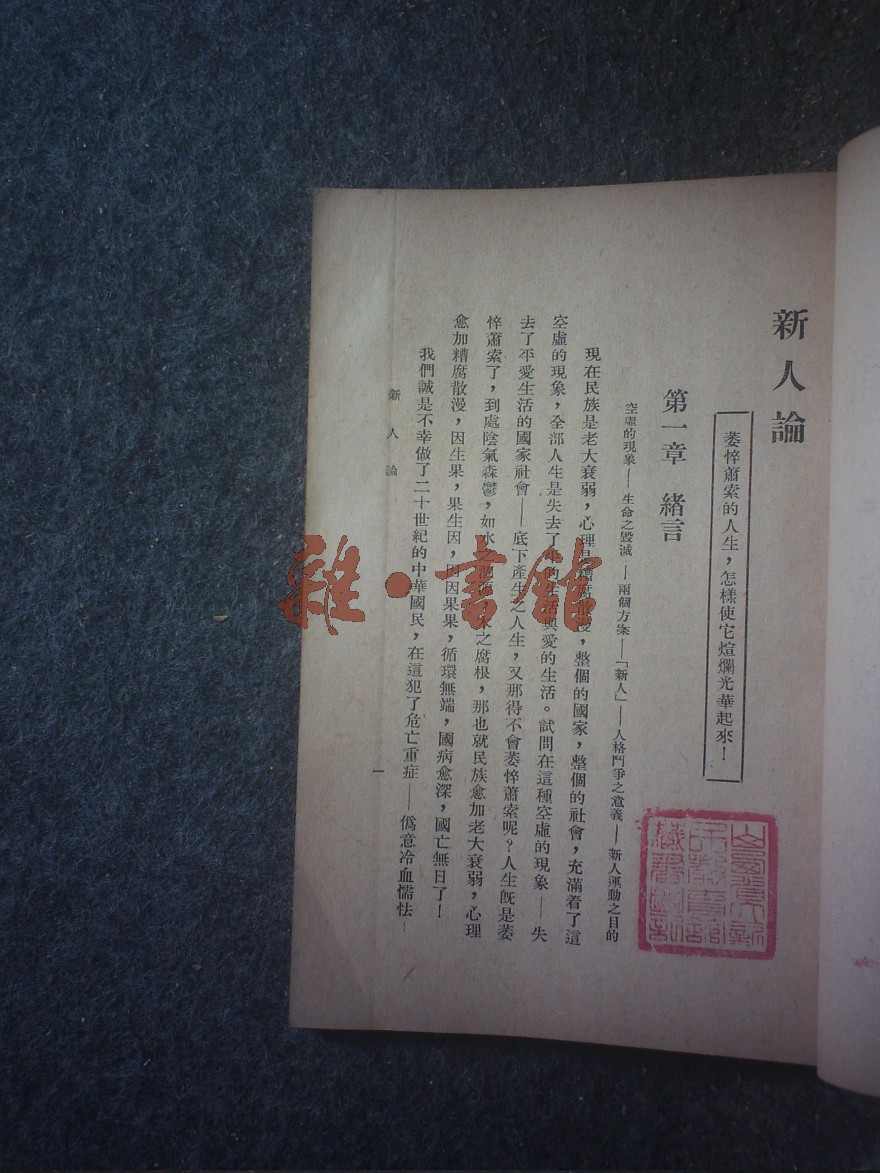 新人論
萎悴蕭索的人生，怎樣使它煊爛光華起來！
第一章　緒言
空虛的現象——生命之毀滅——兩個方案——「新人」——人格鬥爭之意義——新人運動之目的
現在民族是老大衰弱，心理是糟腐散漫，整個的國家，整個的社會，充滿着了這
空虛的現象，全部人生是失去了 生活與愛的生活。試問在這種空虛的現象——失
去了平愛生活的國家社會——底下產生之人生，又那得不會萎悴蕭索呢？人生旣是萎
悴蕭索了，到處陰氣森鬱，如水之 之腐根，那也就民族愈加老大衰弱，心理
愈加糟腐散漫，因生果，果生因，因因果果，循環無端，國病愈深，國亡無日了！
我們誠是不幸做了二十世紀的中華國民，在這犯了危亡重症——僞意冷血懦怯—
新人論
一
雜·書館